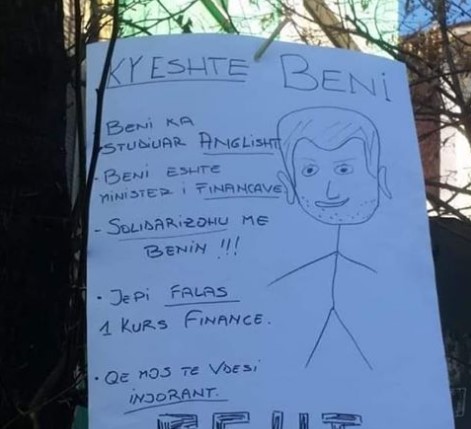 KY ESHTE BENI
BENI KA
STUDIUAR ANGLISHT
- BENI ESHTE
MINISTER I FINANCAVE
- SOLIDARIZOHU ME
BENIN !!!
• JEPI FALAS
1 KURS FINANCE.
• QE MOS TE VDESI
INJORANT.